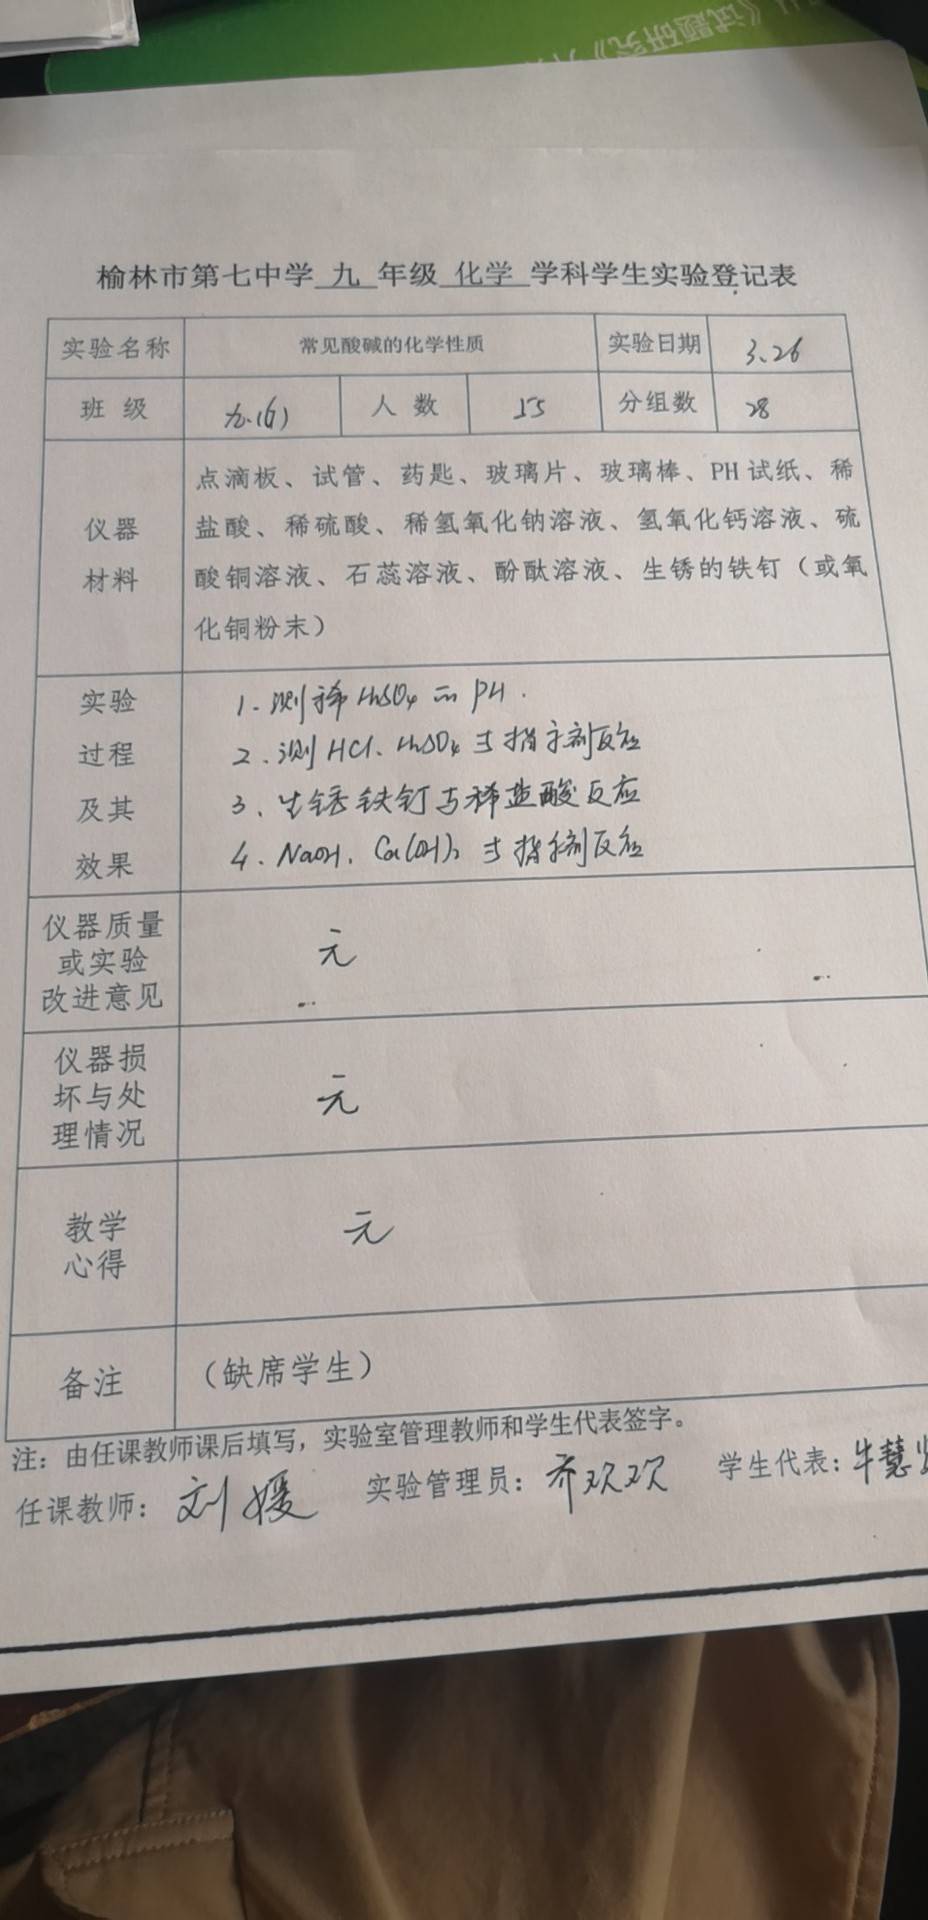 《试题研究》
榆林市第七中学 九 年级 化学 学科学生实验登记表
实验名称 常见酸碱的化学性质 实验日期 3.26
班 级 九.(6) 人 数 55 分组数 28
仪器材料
点滴板、试管、药匙、玻璃片、玻璃棒、PH 试纸、稀
盐酸、稀硫酸、稀氢氧化钠溶液、氢氧化钙溶液、硫
酸铜溶液、石蕊溶液、酚酞溶液、生锈的铁钉（或氧
化铜粉末）
实验过程及其效果
1. 测稀 H₂SO₄ 的 PH.
2. 测 HCl、H₂SO₄ 与指示剂反应
3、生锈铁钉与稀盐酸反应
4. NaOH、Ca(OH)₂ 与指示剂反应
仪器质量或实验改进意见 无
仪器损坏与处理情况 无
教学心得 无
备注 （缺席学生）
注：由任课教师课后填写，实验室管理教师和学生代表签字。
任课教师：刘媛 实验管理员：乔欢欢 学生代表：牛慧